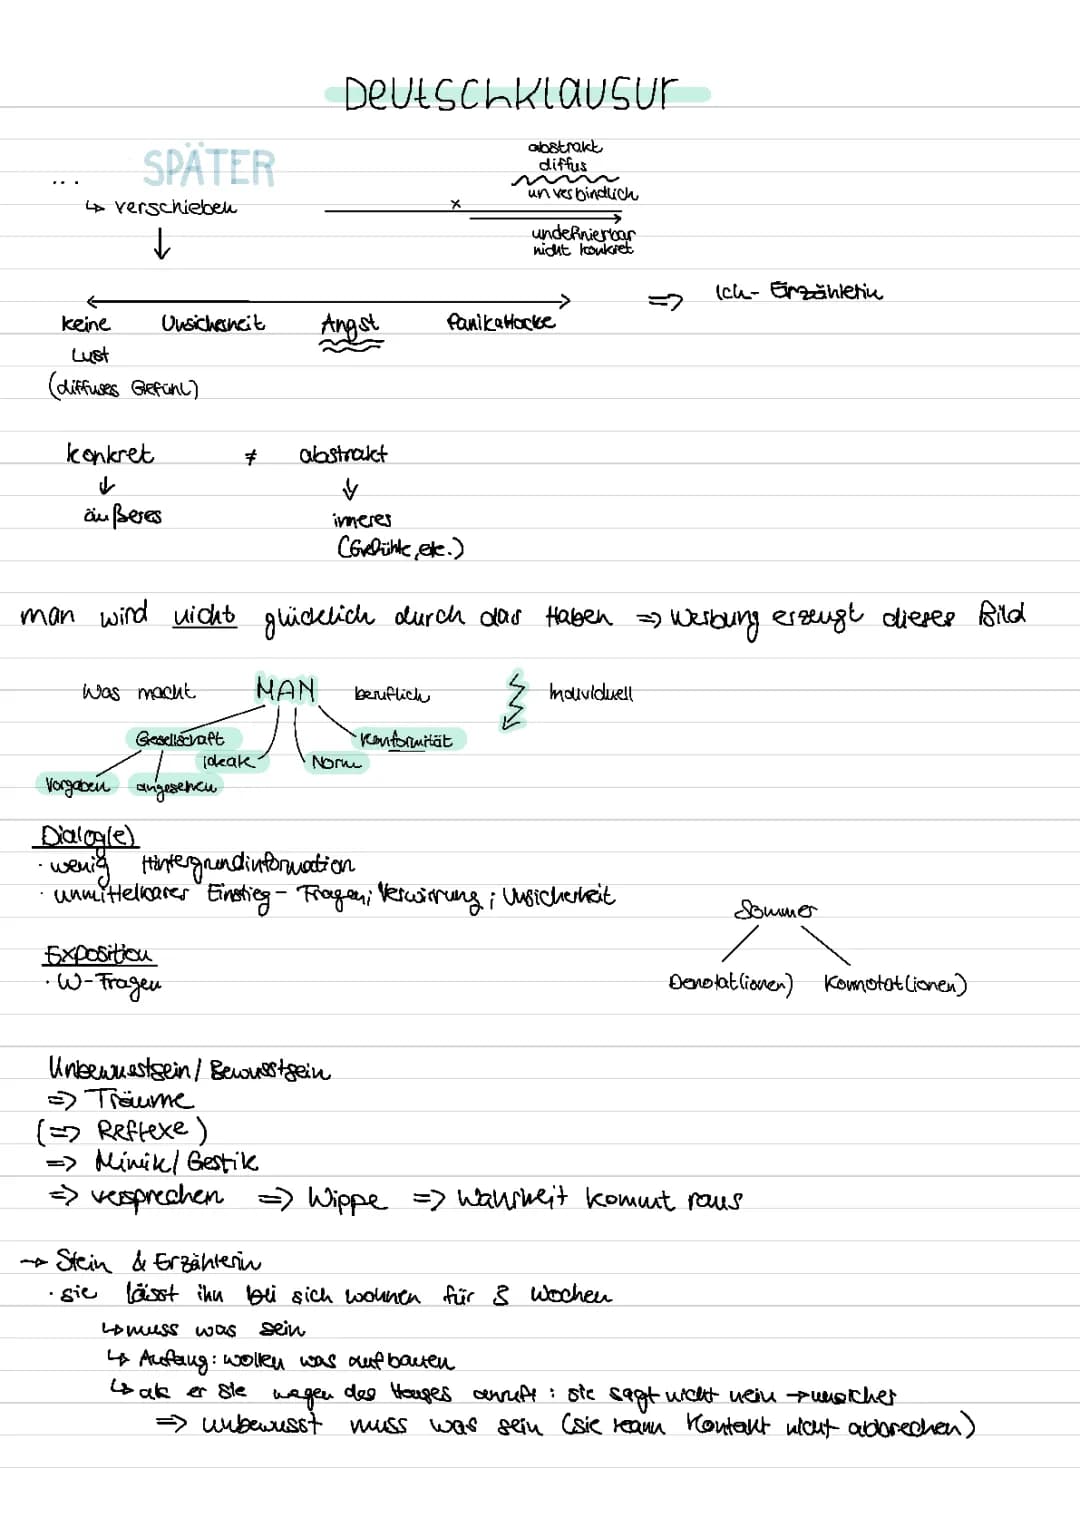 Deutschklausur
... SPÄTER
↳ verschieben
abstrakt
diffus
unverbindlich
x
undefinierbar
nicht konkret
keine Lust
(diffuses Gefühl)
Unsicherheit
Angst
Panikattacke
=> Ich-Erzählerin
konkret ≠ abstrakt
↓ ↓
äußeres inneres
(Gefühle, etc.)
man wird nicht glücklich durch das Haben => Werbung erzeugt dieses Bild
Was macht MAN beruflich Individuell
Gesellschaft Konformität
ideale Norm
Vorgaben angesehen
Dialog(e)
· wenig Hintergrundinformation
· unmittelbarer Einstieg - Fragen; Verwirrung; Unsicherheit
Sommer
Exposition
· W-Fragen
Denotat(ionen) Konnotat(ionen)
Unbewusstsein / Bewusstsein
=> Träume
(=> Reflexe)
=> Mimik / Gestik
=> versprechen => Wippe => Wahrheit kommt raus
→ Stein & Erzählerin
· sie lässt ihn bei sich wohnen für 3 Wochen
↳ muss was sein
↳ Anfang: wollen was aufbauen
↳ als er sie wegen des Hauses anruft: sie sagt nicht nein → unsicher
=> unbewusst muss was sein (sie kann Kontakt nicht abbrechen)